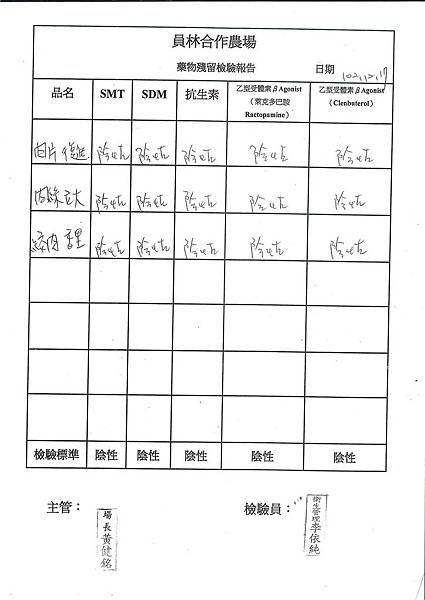 員林合作農場
藥物殘留檢驗報告
日期 102.12.17
品名 SMT SDM 抗生素 乙型受體素βAgonist（萊克多巴胺 Ractopamine） 乙型受體素βAgonist（Clenbuterol）
肉片 陰性 陰性 陰性 陰性 陰性
肉絲 陰性 陰性 陰性 陰性 陰性
絞肉 陰性 陰性 陰性 陰性 陰性
檢驗標準 陰性 陰性 陰性 陰性 陰性
主管： 場長黃健銘 檢驗員： 衛生管理李依純